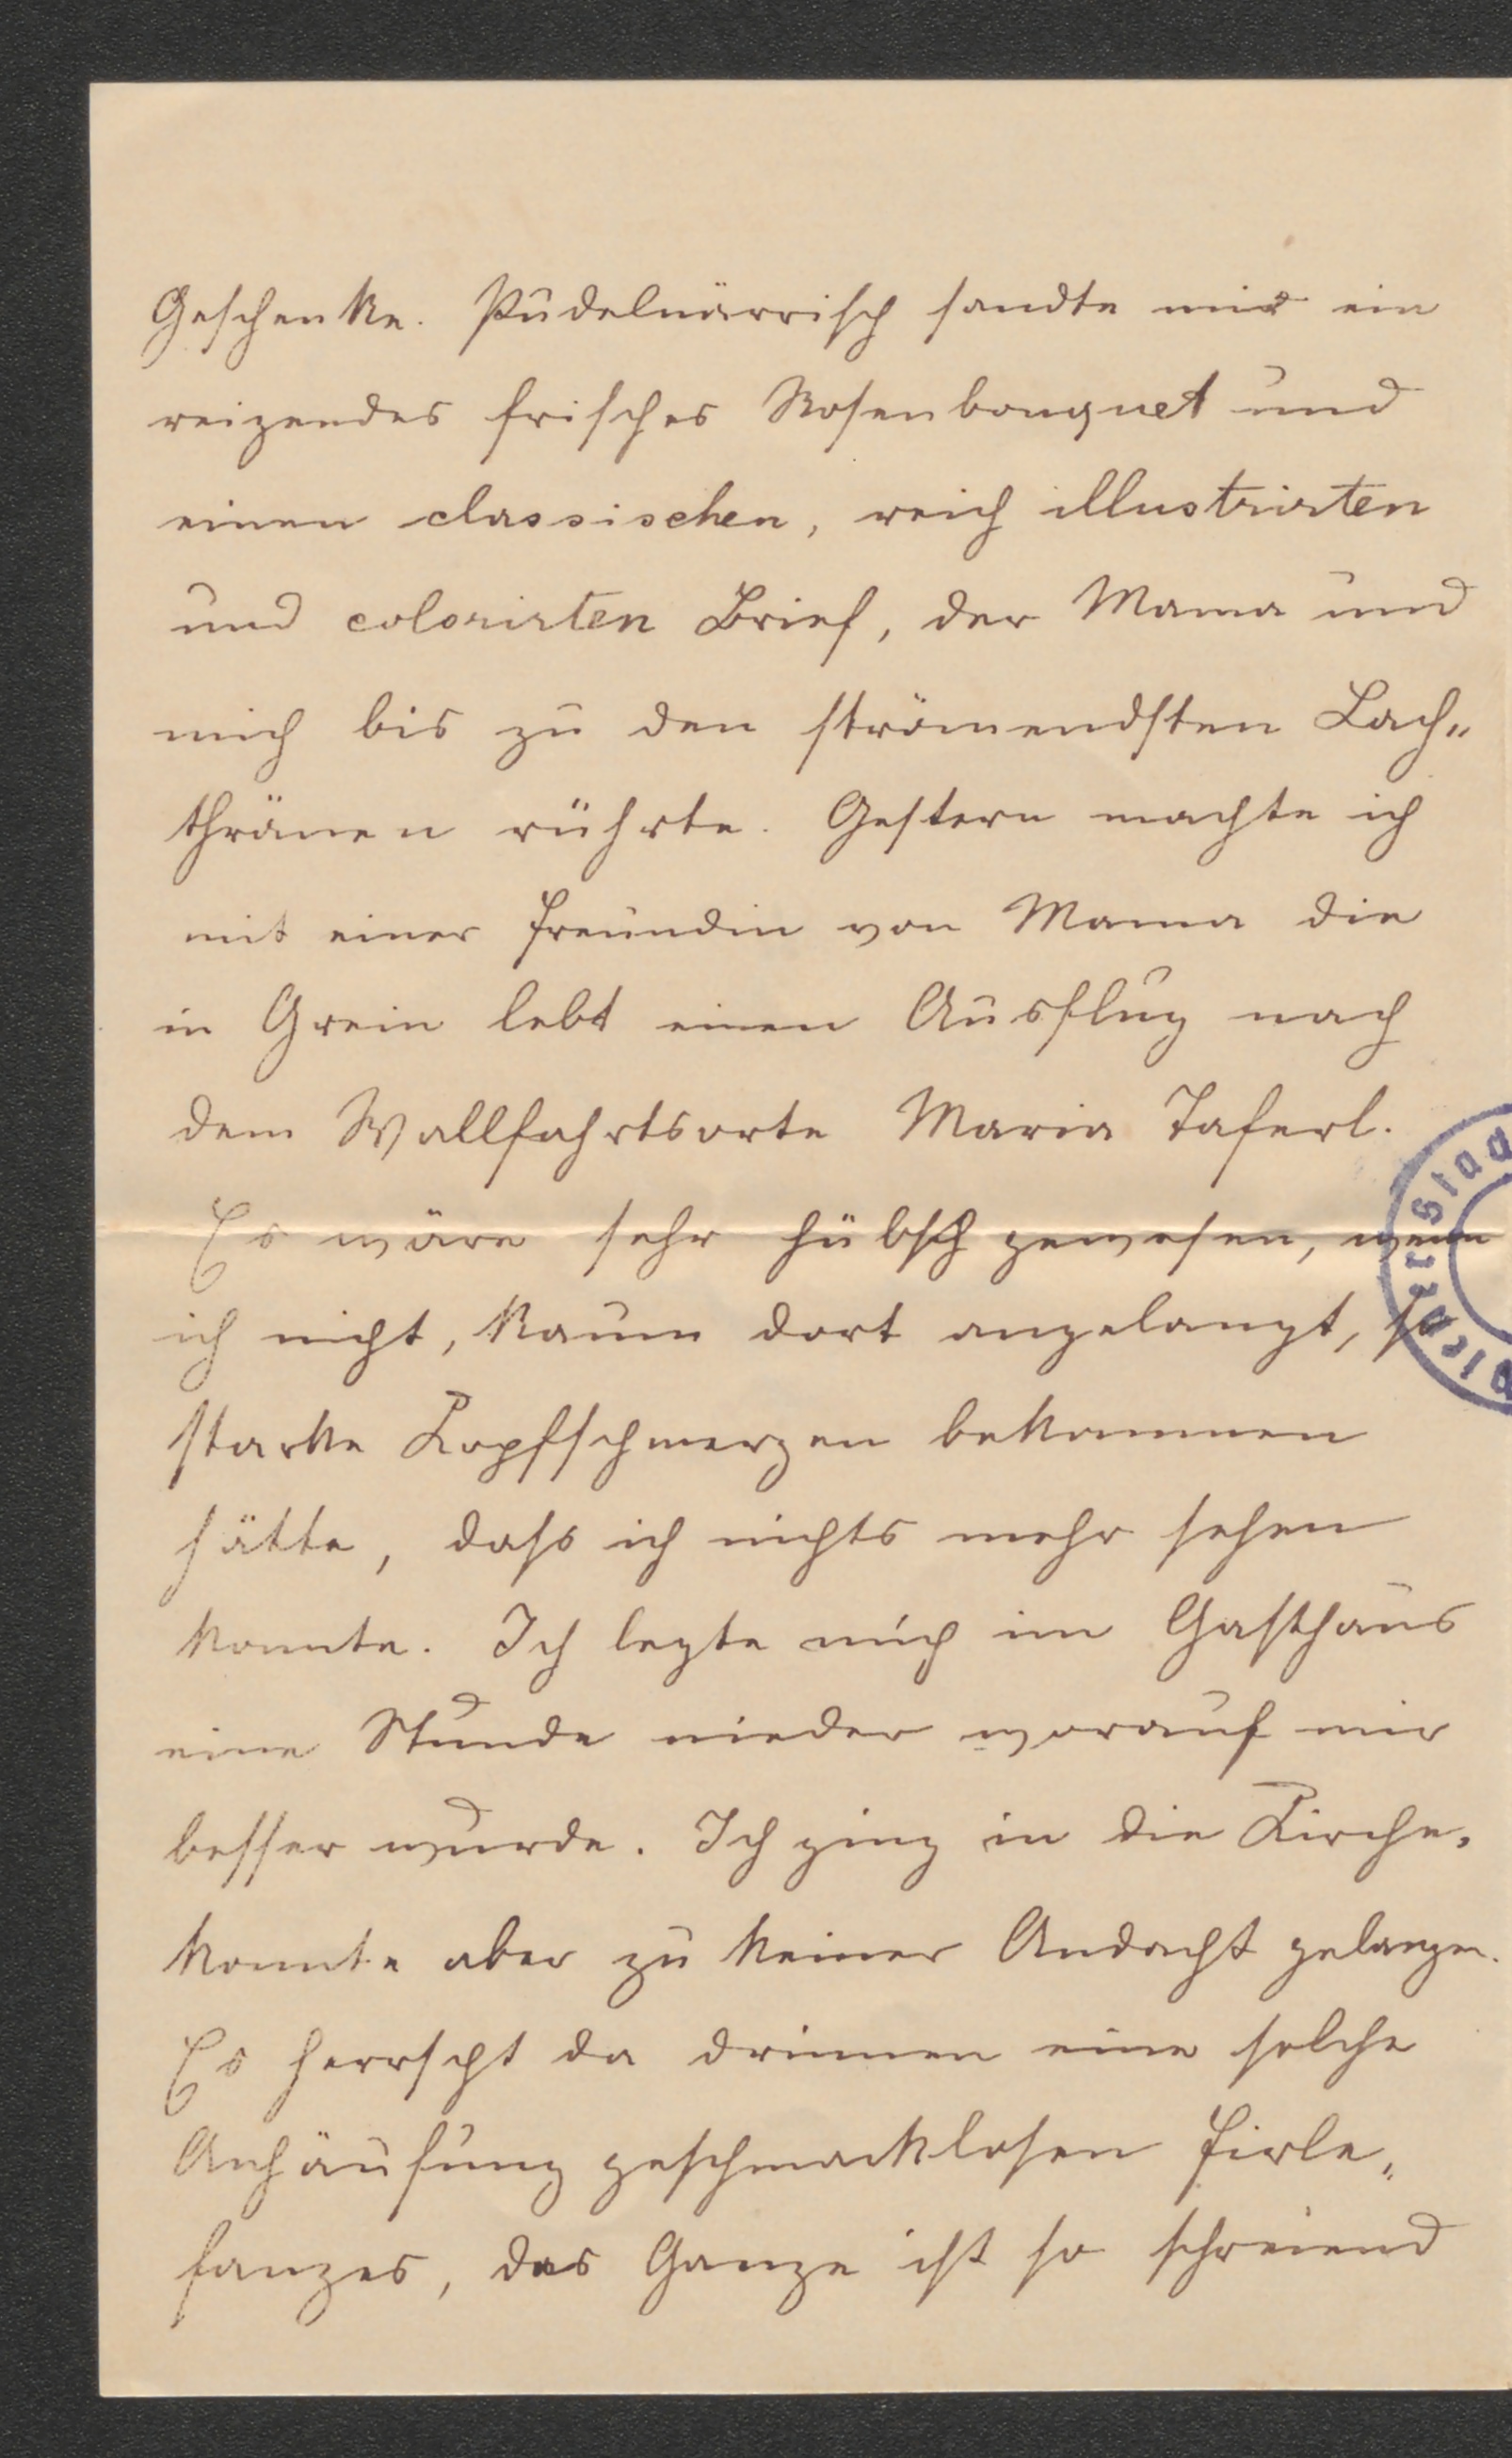 Geschenke. Pudelnärrisch sandte mir ein
reizendes frisches Rosenbouquet und
einen classischen, reich illustrirten
und colorirten Brief, der Mama und
mich bis zu den strömendsten Lach„
thränen rührte. Gestern machte ich
mit einer Freundin von Mama die
in Grein lebt einen Ausflug nach
dem Wallfahrtsorte Maria Taferl.
Es wäre sehr hübsch gewesen, wenn
ich nicht, kaum dort angelangt, so
starke Kopfschmerzen bekommen
hätte, dass ich nichts mehr sehen
konnte. Ich legte mich im Gasthaus
eine Stunde nieder worauf mir
besser wurde. Ich ging in die Kirche,
konnte aber zu keiner Andacht gelangen.
Es herrscht da drinnen eine solche
Anhäufung geschmacklosen Firle„
fanzes, das Ganze ist so schreiend